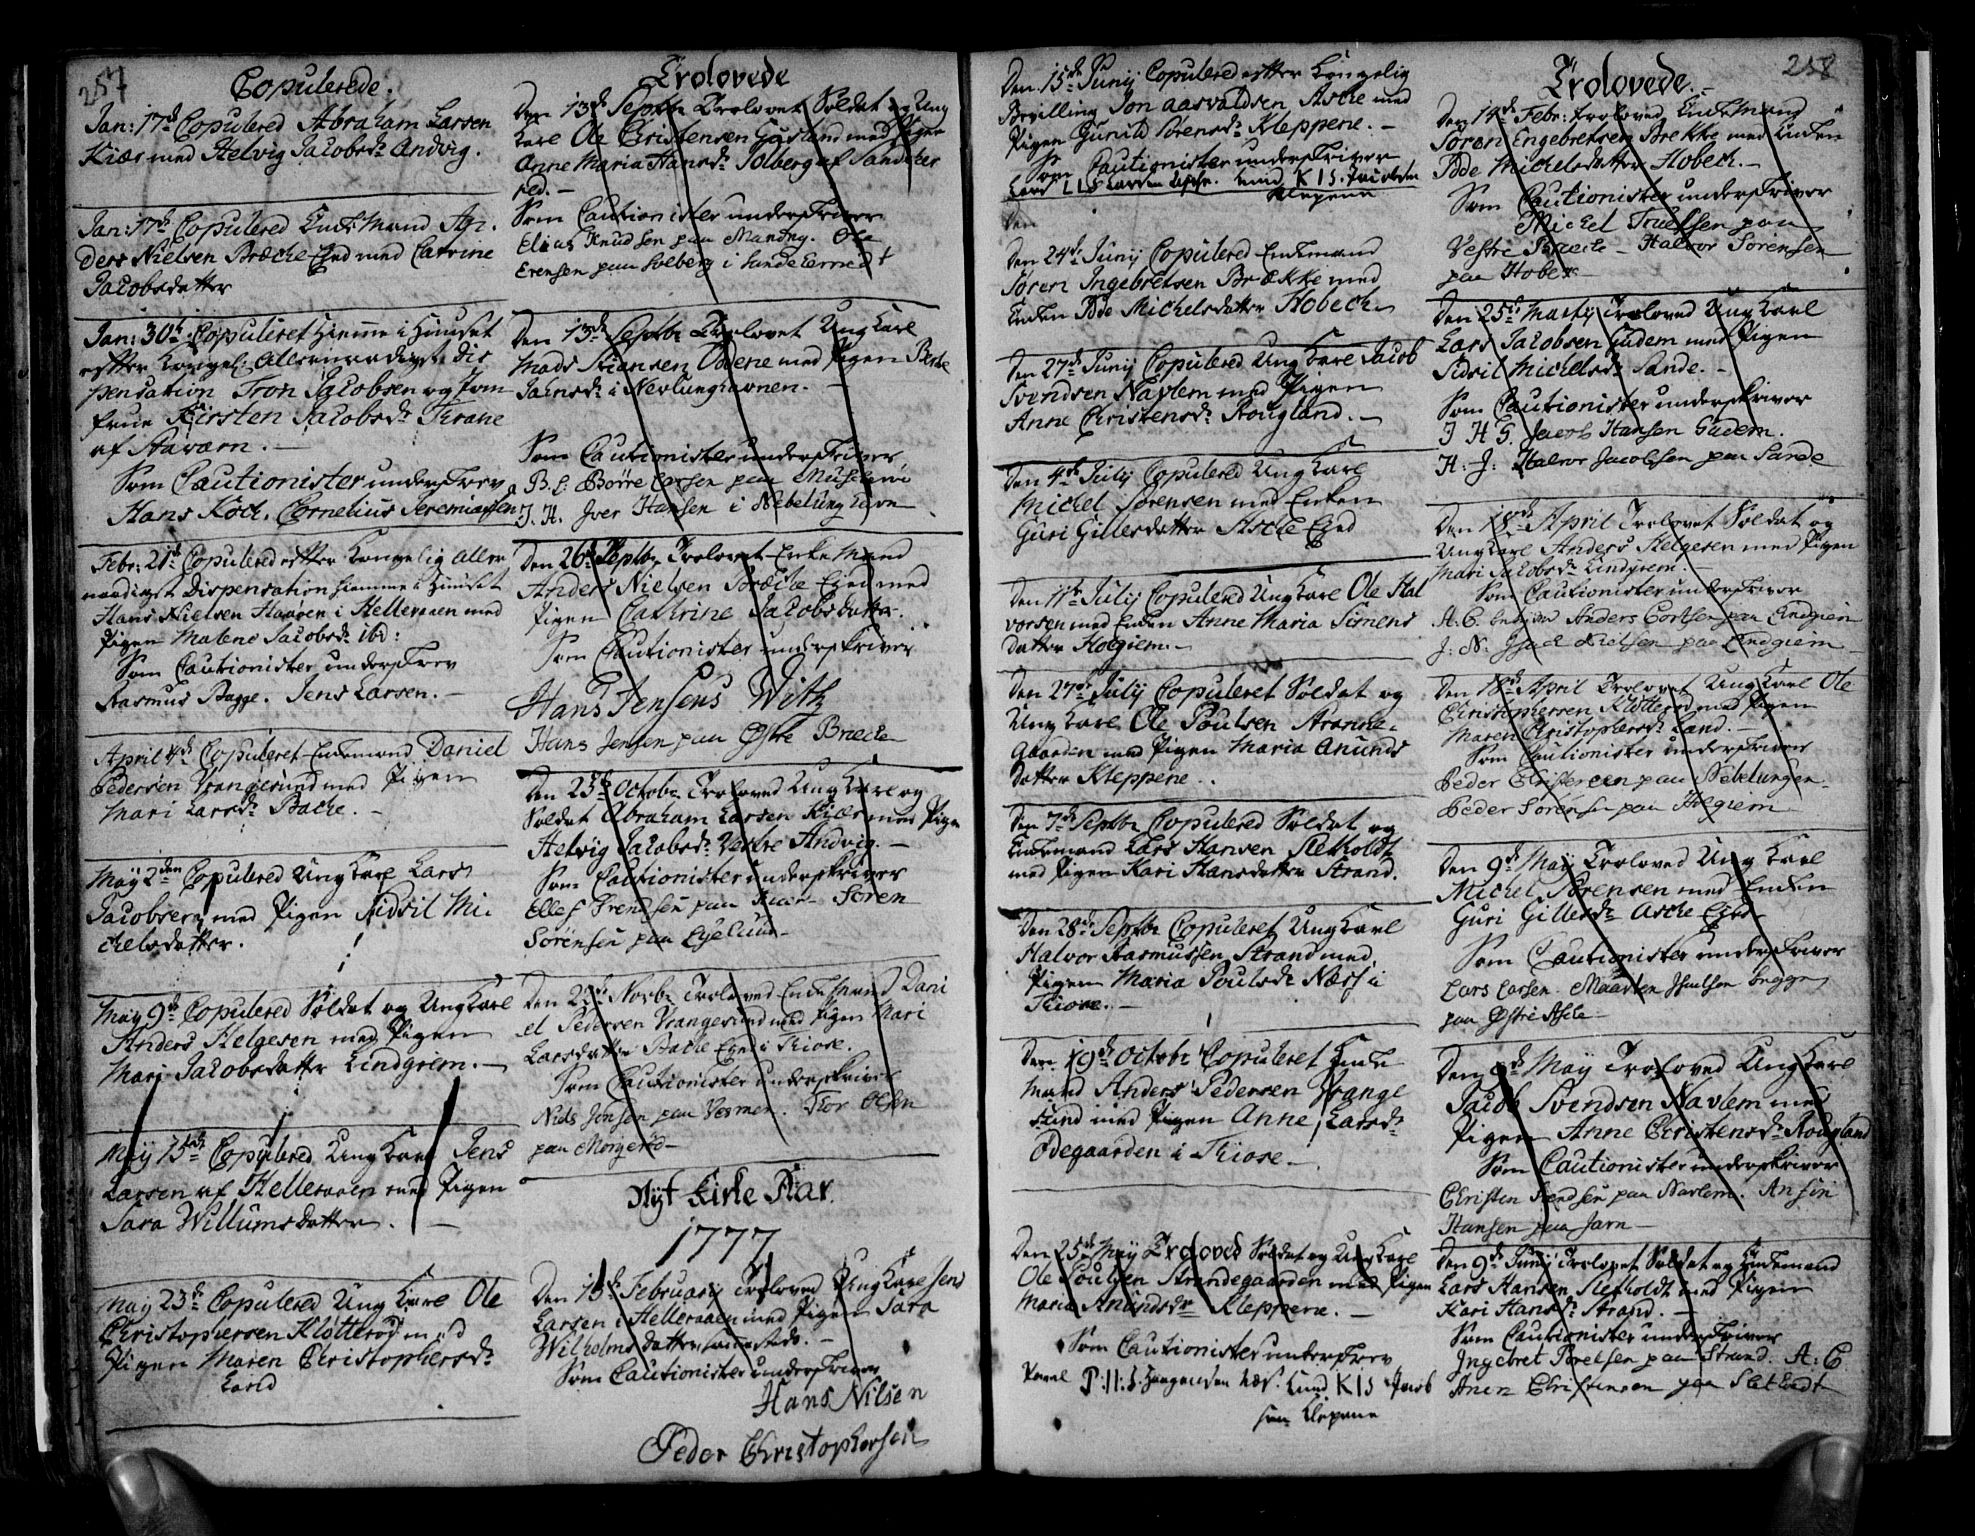 257
Copulerede.
Jan: 17de Copulered Abraham Larsen
Kiær med Helvig Jacobsdr Andvig.
Jan: 17de Copulered Enke Mand An-
ders Nielsen Bræche Eged med Catrine
Jacobsdatter
Jan: 30te Copuleret Hiemme i Huuset
efter Kongel: Allernaadigst Dis
pensation Tron Jacobsen og Jom
frue Kirsten Jacobsdr
af Staværn.
Som Cautionister underskrev
Hans Koch. Cornelius Jeremiassen
Febr: 21de Copulered efter Kongelig Aller
naadigst Dispensation hiemme i Huuset
Hans Nielsen i Helleraaen med
Pigen Malene Jacobsdr ibd:
Som Cautionister underskrev
Rasmus Bagge. Jens Larsen.
April 4de Copuleret Enkemand Daniel
Pedersen Vrangesund med Pigen
Mari Larsdr Bache.
May 2den Copulered Ung Karl Lars
Jacobsen med Pigen Sidsil Mi-
chelsdatter.
May 9de Copulered Soldat og Ung Karl
Anders Helgesen med Pigen
Mari Jacobsdatter Lindgrem.
May 15de Copulered Ung Karl Jens
Larsen af Helleraaen med Pigen
Sara Willumsdatter.
May 23de Copulered Ung Karl Ole
Christophersen Klotterød med
Pigen Maren Christophersdr
Land
Trolovede
Den 13de Septbr Trolovet Soldat og Ung
Karl Ole Christensen Gosland med Pigen
Anne Maria Hansdr Solberg af Sandeher
red.
Som Cautionister underskriver
Elias Knudsen paa Manding. Ole
Erensen paa Solberg i Sande
Den 13de Septbr Trolovet Ung Karl
Mads Stiansen Odene med Pigen
i Nevlunghavnen.
Som Cautionister underskriver
B. L. Børre Larsen paa
J. H. Iver Hansen i Nebelung Havn
Den 26de Septbr Trolovet Enke Mand
Anders Nielsen Bræche Eged med
Pigen Cathrine Jacobsdatter.
Som Cautionister underskriver
Hans Jensens Witz
Hans Jensen paa Østre Bræcke
Den 25de Octobr Troloved Ung Karl og
Soldat Abraham Larsen Kiær med Pigen
Helvig Jacobsdr Vestre Andvig.
Som Cautionister underskriver
Ellef Trendsen paa Kiær Søren
Sørensen paa
Den 22de Novbr Troloved Enke Mand Dani
el Pedersen Vrangesund med Pigen Mari
Larsdatter Bache Eged i Kiose.
Som Cautionister underskriver
Niels Jensen paa Vesmen. Thor Olsen
paa
Nyt Kirke Aar.
1777
Den 15de February Troloved Ung Karl Jens
Larsen i Helleraaen med Pigen Sara
Wilhelms datter sammesteds.
Som Cautionister underskriver
Hans Nilsen
Peder Christophersen
Den 15de Junij Copulered efter Kongelig
Bevilling Jon Aasvaldsen Asche med
Pigen Gunild Sørensdr Kleppene.
Som Cautionister underskriver
Lars LLS Larsen Knud KIS Jacobsen
Klepene
Den
Den 24de Junij Copulered Enkemand
Søren Ingebretsen Brække med
Enken Bode Michelsdatter Hobech
Den 27de Junij Copulered Ung Karl Jacob
Svendsen Navlem med Pigen
Anne Christensdr Rougland.
Den 4de Julij Copulered Ung Karl
Michel Sørensen med Enken
Guri Gillesdatter Asche Eged
Den 11te Julij Copulered Ung Karl Ole Hal
vorsen med Enken Anne Maria Simens
Datter Holgiem.
Den 27de Julij Copuleret Soldat og
Ung Karl Ole Poulsen Stranne-
gaarden med Pigen Maria Anunds
Datter Kleppene.
Den 7de Septbr Copulered Soldat og
Enkemand Lars Hansen Sletholdt
med Pigen Kari Hansdatter Strand.
Den 28de Septbr Copuleret Ung Karl
Halvor Rasmussen Strand med
Pigen Maria Poulsdr Næss i
Kiose.
Den 19de Octobr Copuleret Enke
Mand Anders Pedersen Vrange
sund med Pigen Anne Larsdr
Ødegaarden i Kiose.
Den 25de May Troloved Soldat og Ung Karl
Ole Poulsen Strandegaarden med Pigen
Maria Anundsdr Kleppene.
Som Cautionister underskrev
Knud KIS Jacob
sen Klepene
258
Trolovede.
Den 14de Febr: troloved Enke Mand
Søren Engebretsen Brekke med Enken
Bode Michelsdatter Hobech.
Som Cautionister underskriver
Michel Truelsen paa
Vestre Bræcke Halvor Sørensen
paa Hobek
Den 25de Martij Troloved Ung Karl
Lars Jacobsen Gudem med Pigen
Sidsil Michelsdr Sande.
Som Cautionister underskriver
J H S. Jacob Hansen Gudem.
H: J: Halvor Jacobsen paa Sande
Den 18de April Trolovet Soldat og
Ung Karl Anders Helgesen med Pigen
Mari Jacobsdr Lindgrem.
Som Cautionister underskriver
A. C. Anders Corttsen paa Lindgiem
J: N: Isach Nielsen paa Lindgiem
Den 18de April Trolovet Ung Karl Ole
Christophersen Klotterød med Pigen
Maren Christophersdr Land.
Som Cautionister underskriver
Peder Christensen paa Nebelungen
Peder Sørensen paa Holgiem
Den 9de May Troloved Ung Karl
Michel Sørensen med Enken
Guri Gillesdr Asche Eged
Som Cautionister underskriver
Lars Larsen. Maarten begge
paa Østre Asche
Den 9de May Troloved Ung Karl
Jacob Svendsen Navlem med
Pigen Anne Christensdr Rougland
Som Cautionister underskriver
Christen Svendsen paa Navlem. Ansten
Hansen paa Farn
Den 9de Junij Trolovet Soldat og Enkemand
Lars Hansen Sletholdt med Pigen
Kari Hansdr Strand.
Som Cautionister underskriver
Ingebret Poulsen paa Strand. A: C
Anen Christensen paa Sletholdt